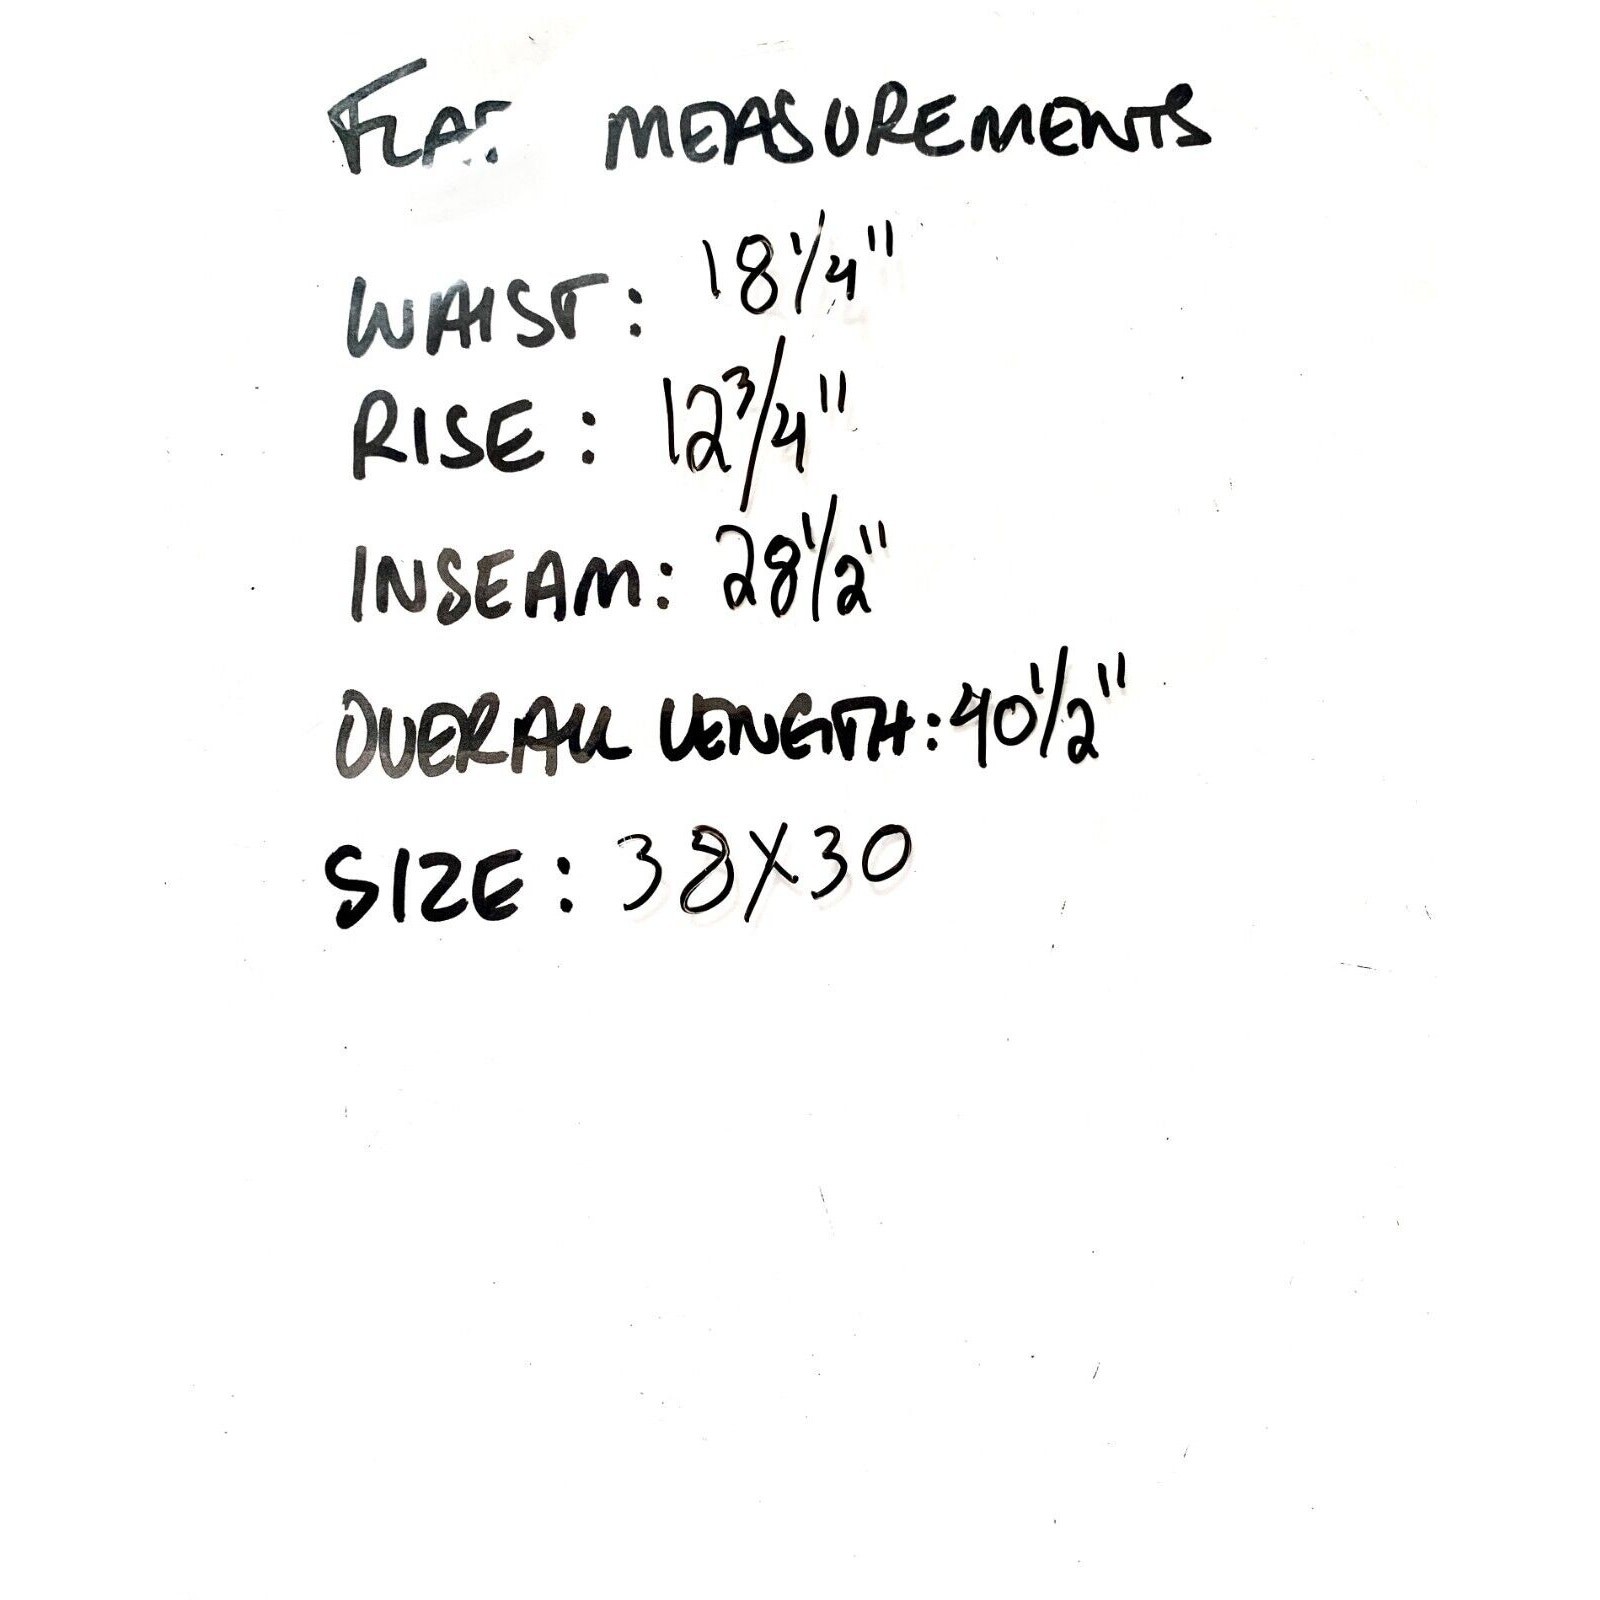 FLAT MEASUREMENTS
WAIST: 18 1/4"
RISE: 12 3/4"
INSEAM: 28 1/2"
OVERALL LENGTH: 40 1/2"
SIZE: 38X30